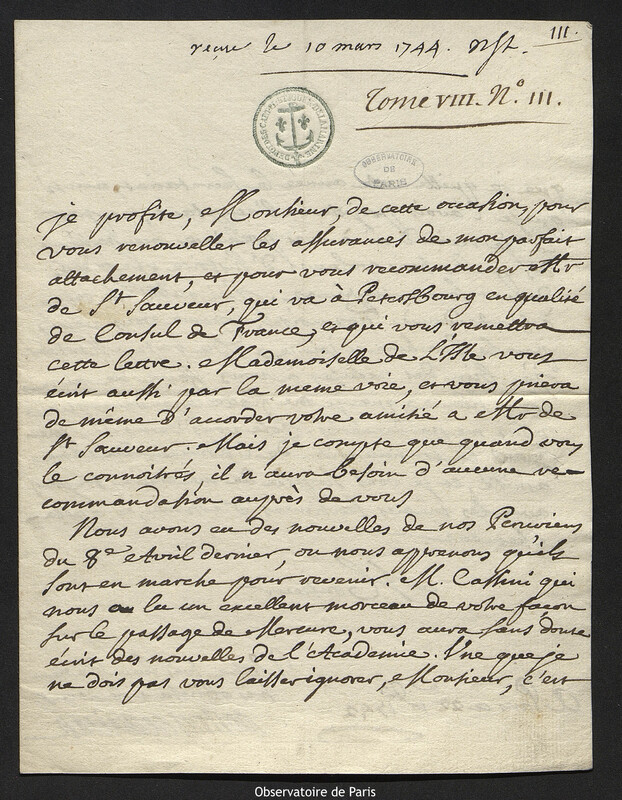 III.
reçue le 10 mars 1744. nſt.
Tome VIII. N.o III.
OBSERVATOIRE
DE
PARIS
je profite, Monsieur, de cette occasion, pour
vous renouveller les assurances de mon parfait
attachement, et pour vous recommander Mr
de St Sauveur, qui va à Petersbourg en qualité
de Consul de France, et qui vous remettra
cette lettre. Mademoiselle de L'Isle vous
écrit aussi par la meme voie, et vous priera
de même d'accorder votre amitié a Mr de
St Sauveur. Mais je compte que quand vous
le connoitrés, il n'aura besoin d'aucune re-
commandation auprès de vous
Nous avons eu des nouvelles de nos Peruviens
du 8e Avril dernier, ou nous apprenons qu'ils
sont en marche pour revenir. M. Cassini qui
nous a lu un excellent morceau de votre façon
sur le passage de Mercure, vous aura sans doute
écrit des nouvelles de l'Academie. Une que je
ne dois pas vous laisser ignorer, Monsieur, c'est
Observatoire de Paris